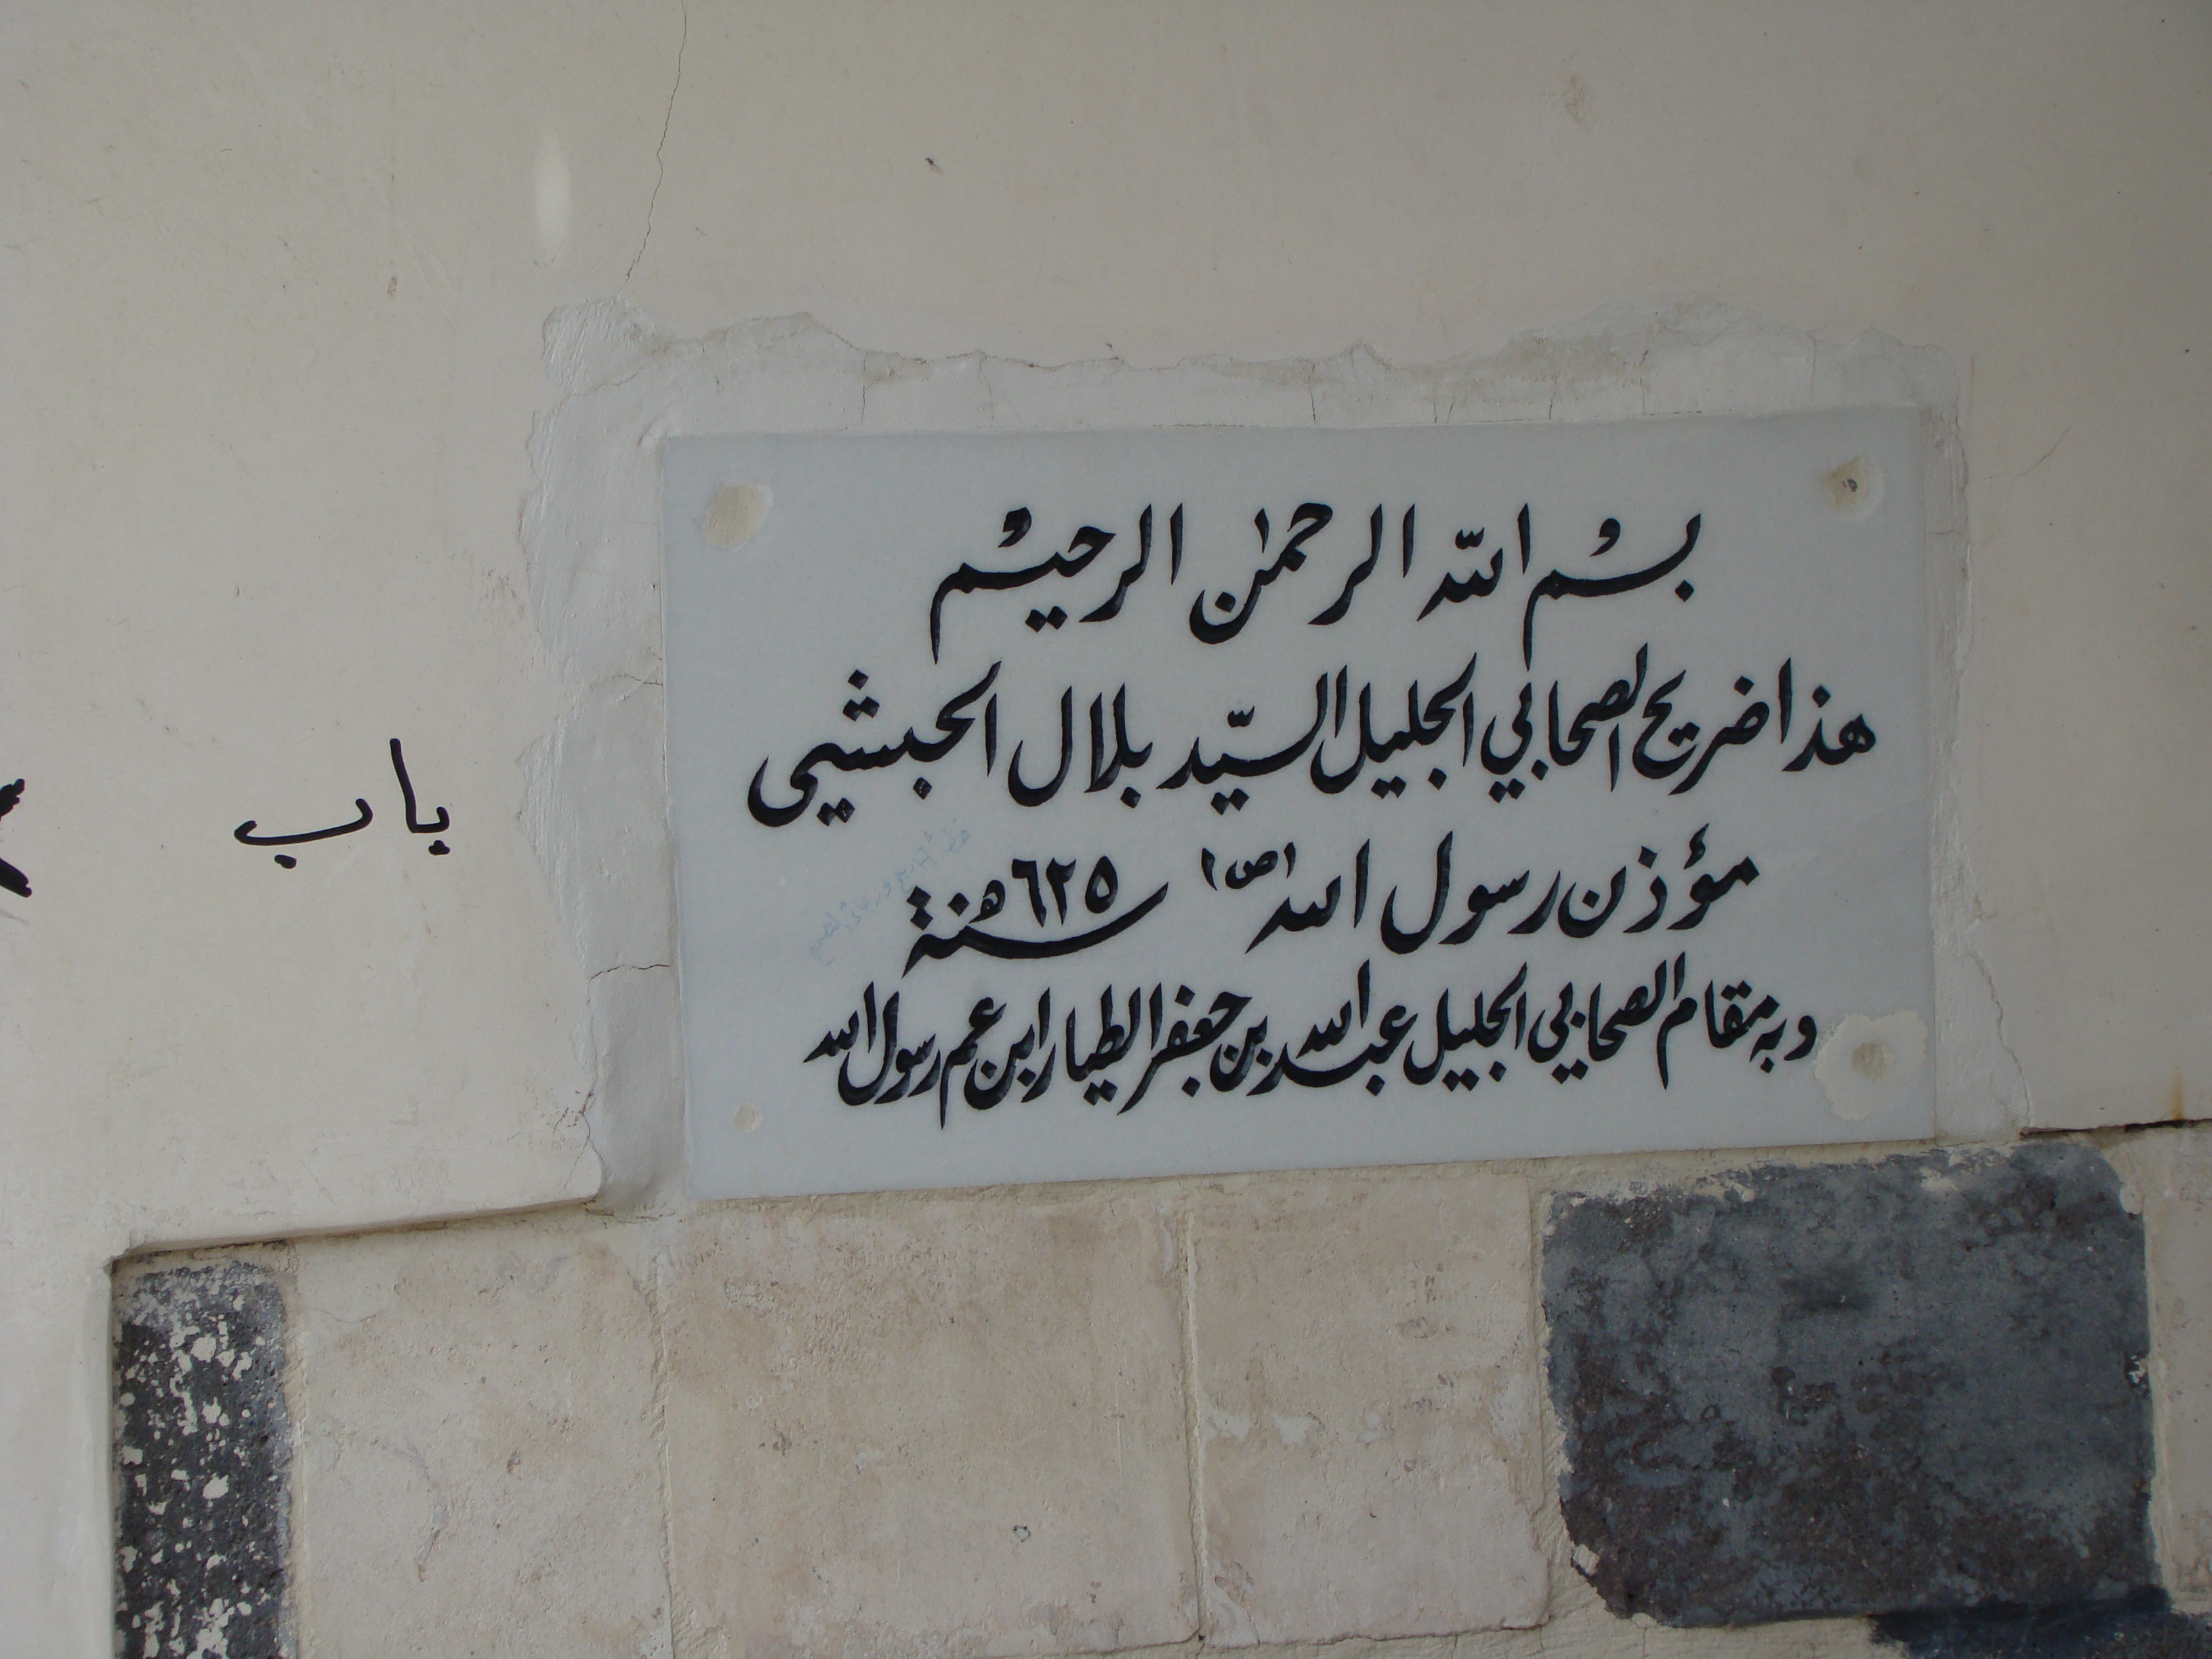 بسْم اللّه الرحمٰن الرحيْم
هذا ضريح الصحابي الجليل السيّد بلال الحبشي
مؤذن رسول الله (ص) سنة ٦٢٥ هـ
وبه مقام الصحابي الجليل عبدالله بن جعفر الطيار ابن عم رسول الله
باب